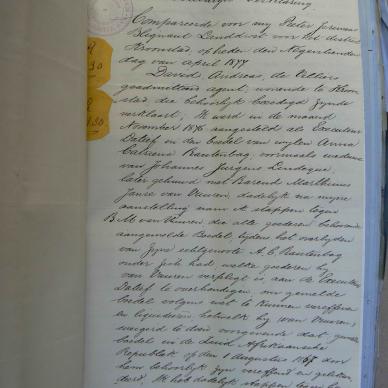 Compareerde voor my Pieter Jeremia
Blignault Landdrost voor het district
Kroonstad, op heden den Negentienden
dag van April 1877
David, Andreas, de Villiers
geadmitteerd agent, wonende te Kroon
stad die behoorlyk beedigd zynde
verklaart, Ik werd in de maand
November 1876 aangesteld als Executeur
Datief in den boedel van wylen Anna
Catriena Rautenbag voormaals weduwe
van Johannes Jurgens Lindeque
later gehuwd met Barend Marthinus
Janse van Vuuren, dadelyk na myne
aanstelling nam ik stappen tegen
B. M. van Vuuren die alle goederen behoorende
aan gemelde Boedel, tydens het overlyden
van zyne echtgenoote A. C. Rautenbag
onder zich had welke goederen hy
van Vuuren verpligt is, aan de Executeur
Datief te overhandigen om gemelde
boedel volgens wet te kunnen
en liquideeren hetwelk hy van Vuuren,
weigerd te doen voorgevende dat gemelde
boedel in de Zuid Afrikaansche
Republiek op den 1 Augustus door
hem behoorlyk zyn en
deerd. Ik heb dadelyk stappen